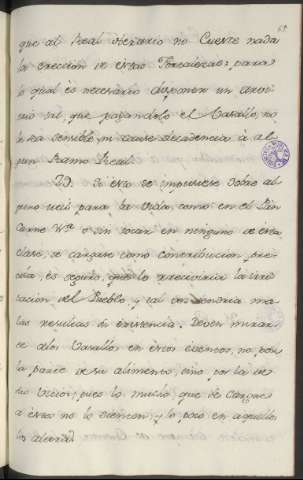 que al Real Herario no Cueste nada
la ereccion de estas Fortalezas; para
lo qual es necesario disponer un arvi-
trio tal, que pagandolo el Vasallo, no
le sea sensible, ni cause decadencia à al
gun Ramo Real.
Si esto se impusiese sobre al
guno util para la vida, como en el Pan
Carne &ª. ò sin tocar en ninguno de esta
clase, se cargase como contribucion pre-
cisa, es seguro, que lo reciviria la
del Pueblo, y tal vez tendria ma-
las resultas su existencia. Deven mirar-
se alos Vasallos en estos eventos, no por
la parte de su alimento, sino por la de
sus vicios; pues lo mucho que se cargue
a estos no lo sienten, y lo poco en aquellos